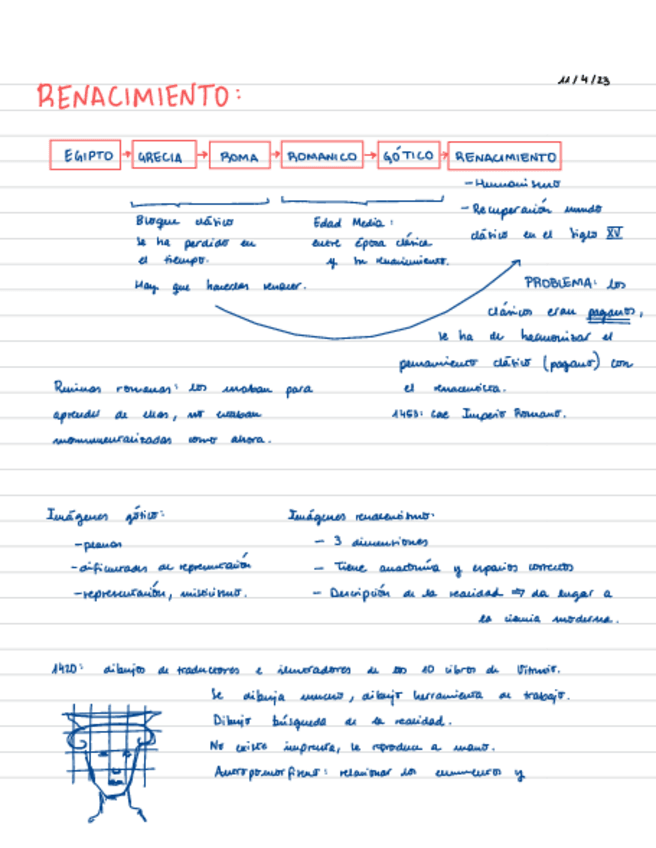 11/4/23
RENACIMIENTO:
EGIPTO → GRECIA → ROMA → ROMANICO → GÓTICO → RENACIMIENTO
- Humanismo
- Recuperación mundo
clásico en el siglo XV
Bloque clásico
se ha perdido en
el tiempo.
Hay que hacerlas renacer.
Edad Media:
entre época clásica
y
PROBLEMA: los
clásicos eran paganos,
se ha de harmonizar el
pensamiento clásico (pagano) con
el renacentista.
1453: cae Imperio Romano.
Ruinas romanas: los usaban para
aprender de ellas, no estaban
monumentalizadas como ahora.
Imágenes gótico:
- planas
- dificultades de representación
- representación, misticismo.
Imágenes renacentismo:
- 3 dimensiones
- Tiene anatomía y espacios correctos
- Descripción de la realidad ⇒ da lugar a
la ciencia moderna.
1420: dibujos de traductores e ilustradores de los 10 libros de Vitruvio.
Se dibuja mucho, dibujo herramienta de trabajo.
Dibujo búsqueda de la realidad.
No existe imprenta, se reproduce a mano.
Antropomorfismo: relacionar los elementos y